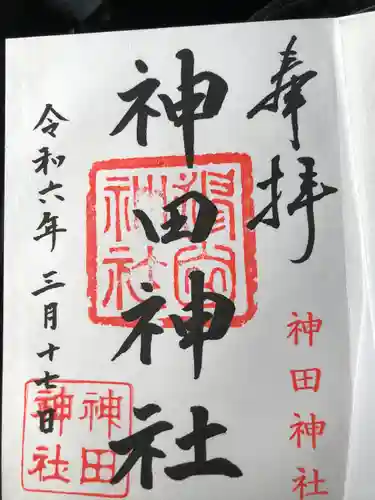 奉拝
神田神社
神田神社
令和六年三月十七日
神田
神社